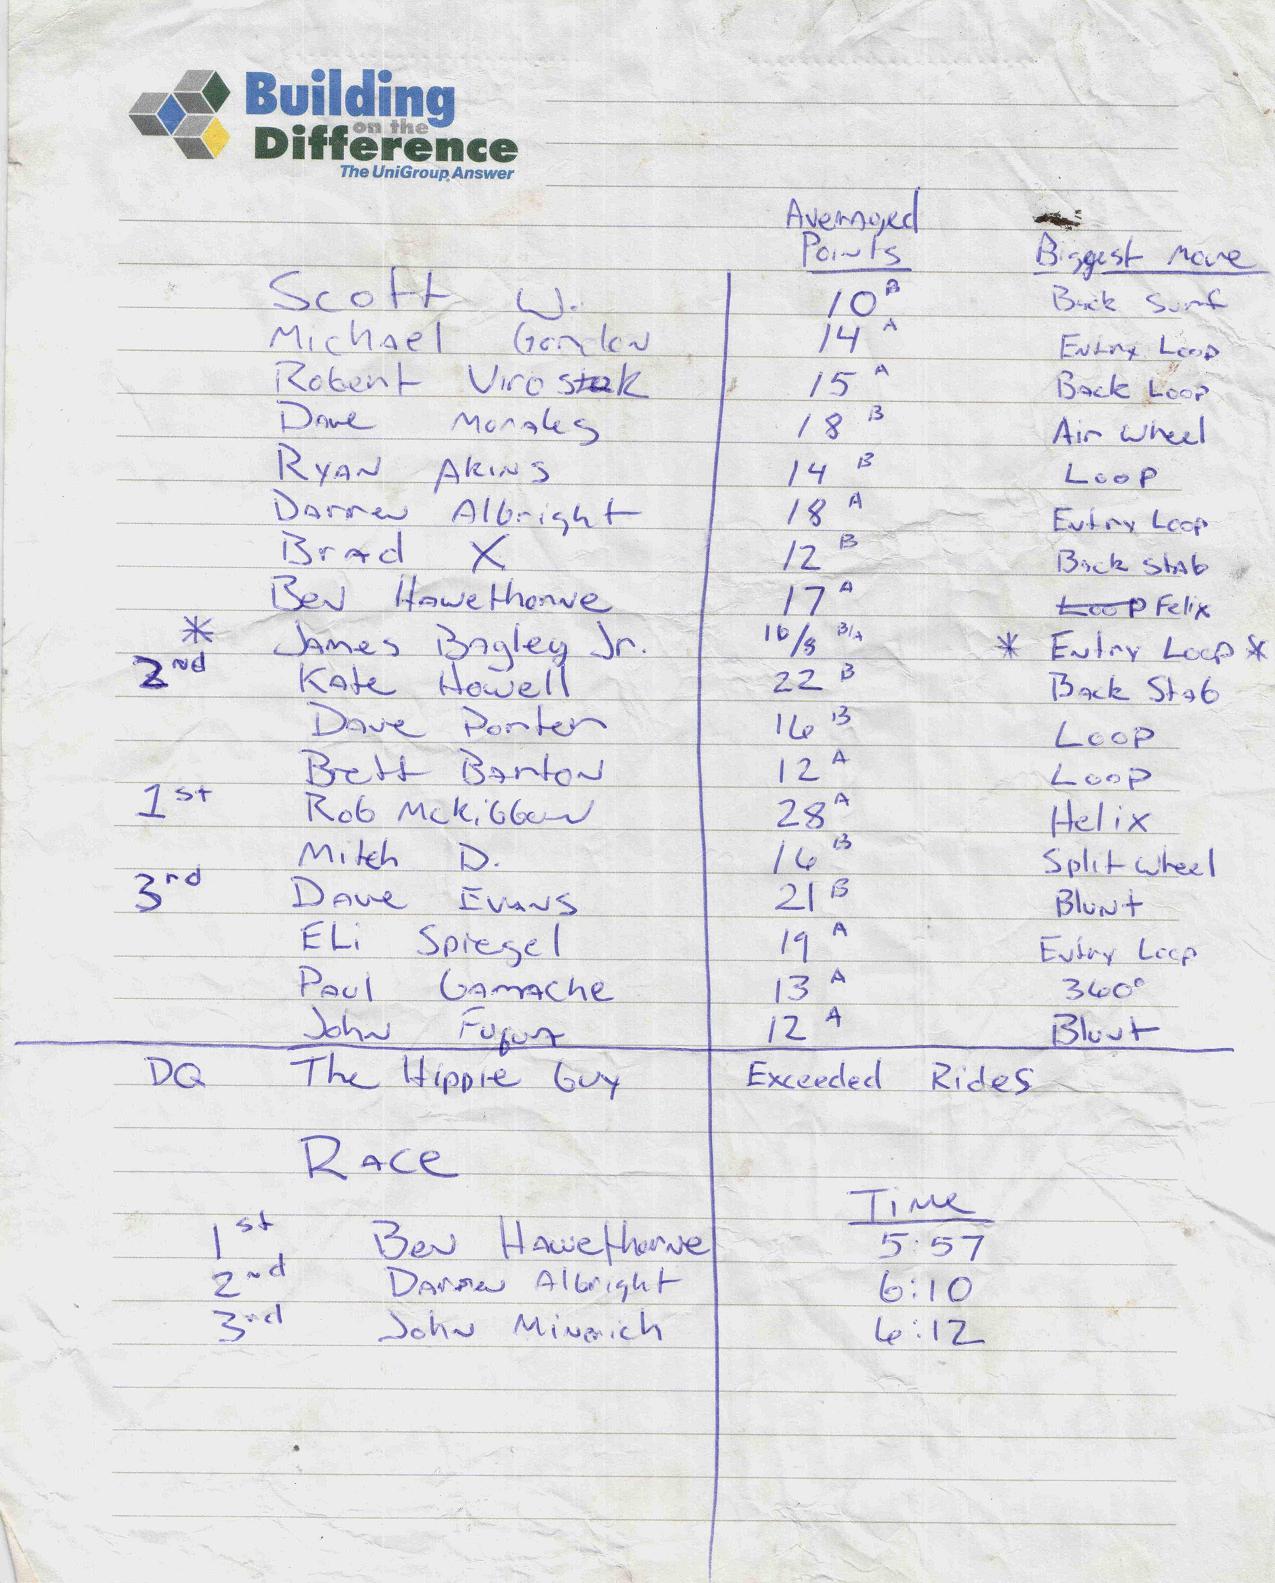 Building
on the
Difference
The UniGroup Answer
Averaged Points Biggest Move
Scott W. 10 B Back Surf
Michael Gordon 14 A Entry Loop
Robert Virostek 15 A Back Loop
Dave Morales 18 B Air Wheel
Ryan Akins 14 B Loop
Darren Albright 18 A Entry Loop
Brad X 12 B Back Stab
Ben Hawethorne 17 A Loop Felix
* James Bagley Jr. 16/8 B/A * Entry Loop *
2nd Kate Howell 22 B Back Stab
Dave Porter 16 B Loop
Brett Barton 12 A Loop
1st Rob McKibben 28 A Helix
Mitch D. 16 B Split wheel
3rd Dave Evans 21 B Blunt
Eli Spiegel 19 A Entry Loop
Paul Gamache 13 A 360°
John Fuqua 12 A Blunt
DQ The Hippie Guy Exceeded Rides
Race
Time
1st Ben Hawethorne 5:57
2nd Darren Albright 6:10
3rd John Minnich 6:12